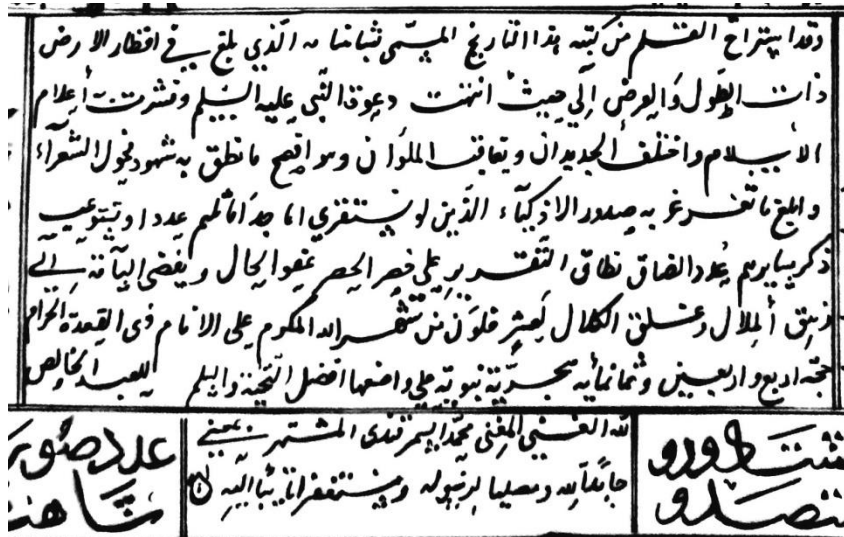 وقد استراح القلم من كتبه هذا التاريخ المسمى بشاهنامه الذي بلغ في اقطار الارض
ذات الطول والعرض الى حيث انتهت دعوة النبي عليه السلم ونشرت به أعلام
الاسلام واختلف الجديدان وتعاقب الملوان وهو افصح ما نطق به شهود فحول الشعرآء
وابلغ ما تفرغ به صدور الاذكيآء الذين لو يستقري اماجد أماثلهم عددا ويستوعب
ذكر سايرهم عددا لضاق نطاق التقرير على خصر الحصر عفو الحال ويفضى السآمة الى
الملال الكلال لعشر خلون من شهر الله المكرم على الانام ذى القعدة الحرام
حجة اربع واربعين وثمانمأيه هجرية نبوية على واضعها افضل التحية والسلم للعبد الخالص
لله الغنى المغنى محمد السمرقندى المشتهر
حامدا لله ومصليا لرسوله ومستغفرا
عدد صور
شاهن